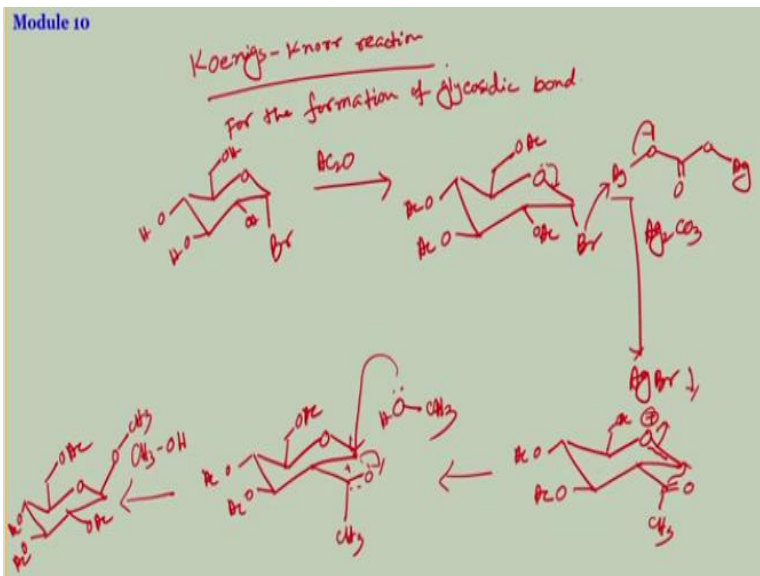 Module 10
Koenigs-Knorr reaction
For the formation of glycosidic bond
OH
H O
H O
OH
O
Br
Ac2O
OAc
AcO
AcO
O
OAc
Br
Ag
O
O
O
Ag
Ag2CO3
AgBr ↓
OAc
O
+
AcO
AcO
O
CH3
H-O-CH3
OAc
O
AcO
AcO
+
O
CH3
CH3-OH
CH3
O
OAc
O
AcO
AcO
OAc